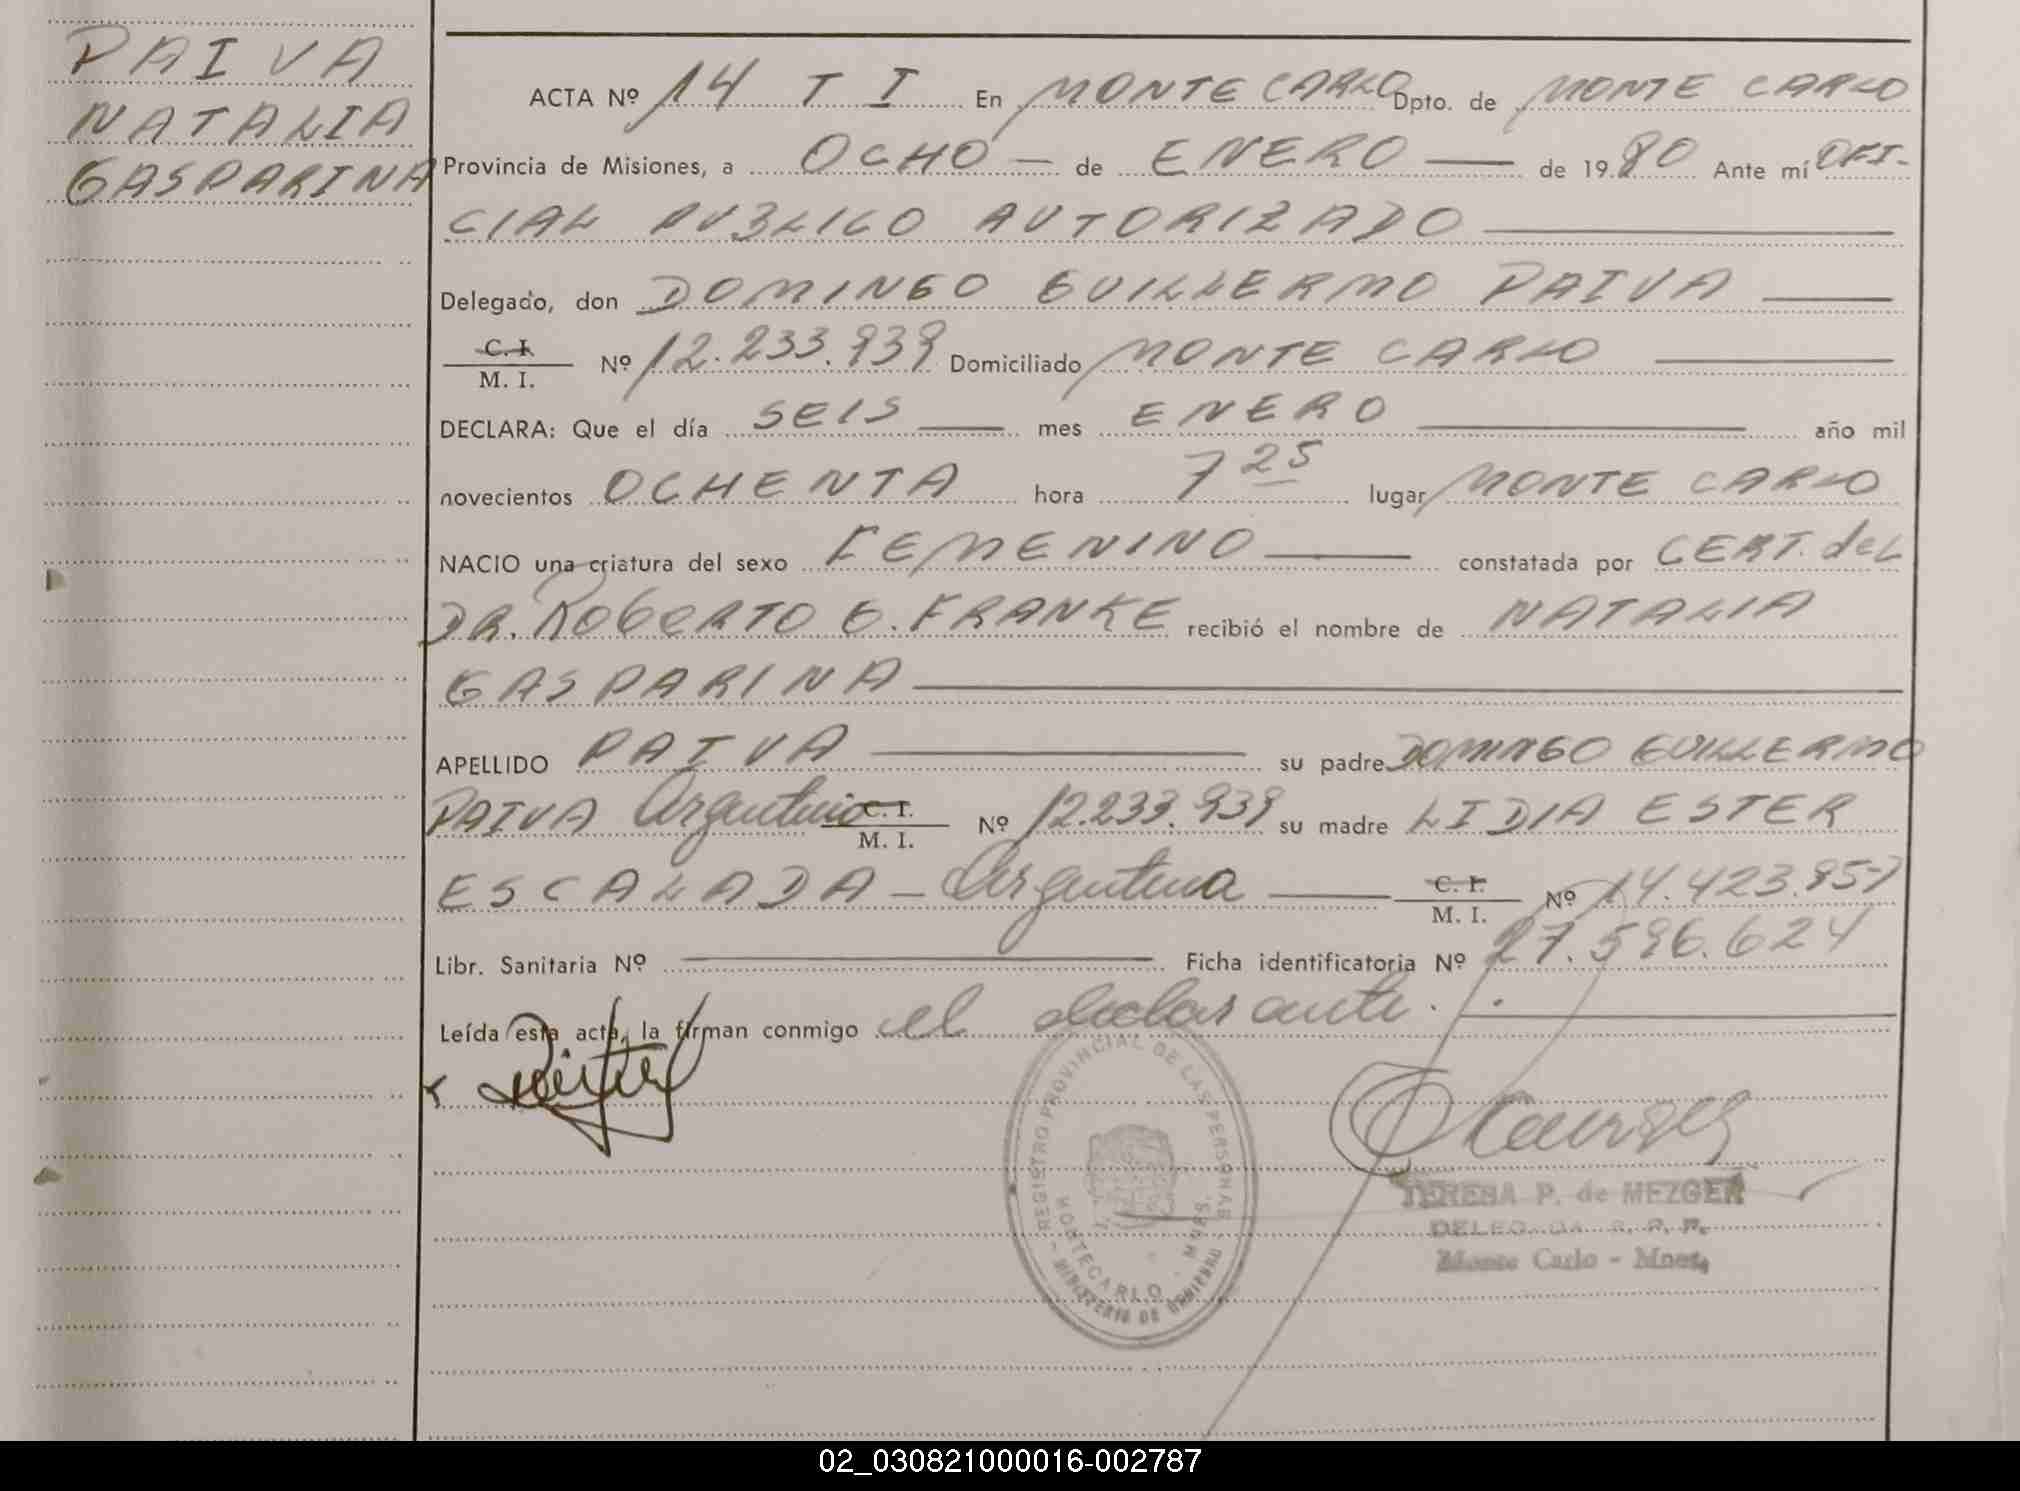 PAIVA
NATALIA
GASPARINA
ACTA Nº 14 T I En MONTE CARLO Dpto. de MONTE CARLO
Provincia de Misiones, a OCHO — de ENERO — de 1980 Ante mí OFI-
CIAL PUBLICO AUTORIZADO
Delegado, don DOMINGO GUILLERMO PAIVA
C. I.
M. I. Nº 12.233.939 Domiciliado MONTE CARLO
DECLARA: Que el día SEIS mes ENERO año mil
novecientos OCHENTA hora 7 25 lugar MONTE CARLO
NACIO una criatura del sexo FEMENINO constatada por CERT. deL
DR. ROBERTO G. FRANKE recibió el nombre de NATALIA
GASPARINA
APELLIDO PAIVA su padre DOMINGO GUILLERMO
PAIVA Argentino C. I. M. I. Nº 12.233.939 su madre LIDIA ESTER
ESCALADA — Argentina C. I. M. I. Nº 14.423.957
Libr. Sanitaria Nº Ficha identificatoria Nº 27.596.624
Leída esta acta, la firman conmigo el declarante.
REGISTRO PROVINCIAL DE LAS PERSONAS
MONTECARLO - MNES.
MINISTERIO DE GOBIERNO
TERESA P. de MEZGER
DELEGADA R. P. P.
Monte Carlo - Mnes.
02_030821000016-002787